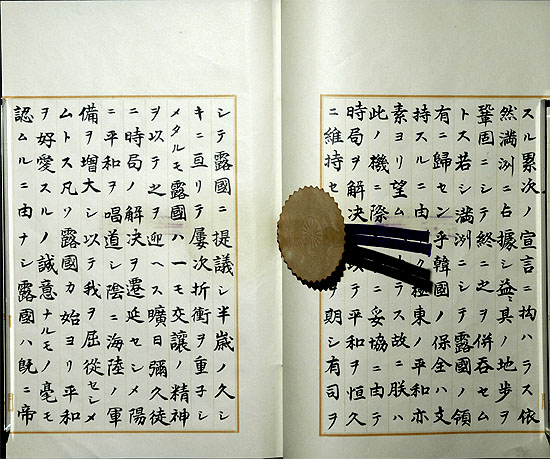 スル累次ノ宣言ニ拘ハラス依
然滿洲ニ占據シ益々其ノ地歩ヲ
鞏固ニシテ終ニ之ヲ併呑セム
トス若シ滿洲ニシテ露國ノ領
有ニ歸セン乎韓國ノ保全ハ支
持スルニ由ク極東ノ平和亦
素ヨリ望ムラス故ニ朕ハ
此ノ機ニ際ニ妥協ニ由テ
時局ヲ解決以テ平和ヲ恒久
ニ維持セ期シ有司ヲ
シテ露國ニ提議シ半歳ノ久シ
キニ亘リテ屢次折衝ヲ重子シ
メタルモ露國ハ一モ交讓ノ精神
ヲ以テ之ヲ迎ヘス曠日彌久徒
ニ時局ノ解決ヲ遷延セシメ陽
ニ平和ヲ唱道シ陰ニ海陸ノ軍
備ヲ增大シ以テ我ヲ屈從セシメ
ムトス凡ソ露國カ始ヨリ平和
ヲ好愛スルノ誠意ナルモノ毫モ
認ムルニ由ナシ露國ハ既ニ帝